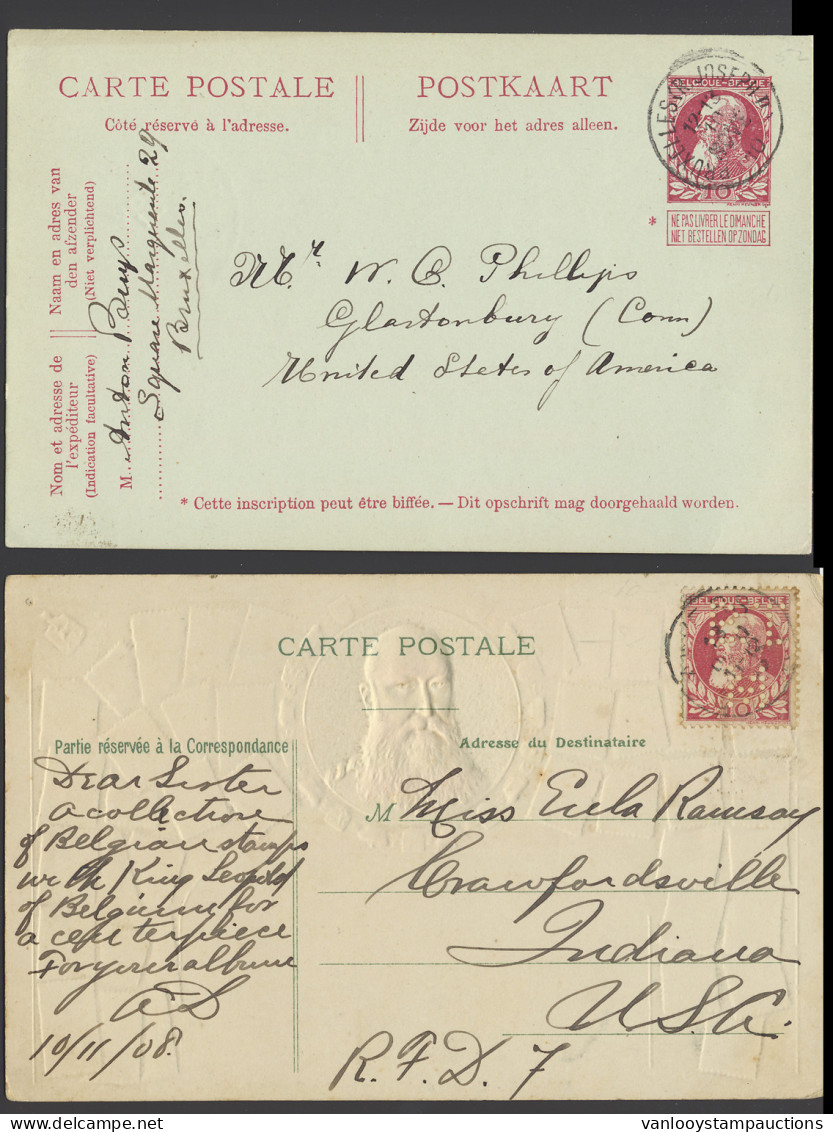 CARTE POSTALE
Côté réservé à l'adresse.
POSTKAART
Zijde voor het adres alleen.
BELGIQUE-BELGIË
10
* NE PAS LIVRER LE DIMANCHE
NIET BESTELLEN OP ZONDAG
Naam en adres van
den afzender
(Niet verplichtend)
Nom et adresse de
l'expéditeur
(Indication facultative)
M. Anton
Square Marguerite 29
Bruxelles.
Mr. W. C. Phillips
Glastonbury (Conn)
United States of America
* Cette inscription peut être biffée. — Dit opschrift mag doorgehaald worden.
CARTE POSTALE
BELGIQUE-BELGIË
10
Partie réservée à la Correspondance
Adresse du Destinataire
Dear Sister
a collection
of Belgian stamps
with King Leopold
of Belgium for
a centerpiece
For your album
10/11/08.
M Miss Eula Ramsay
Crawfordsville
Indiana
U.S.A.
R.F.D. 7
vanlooystampauctions.com